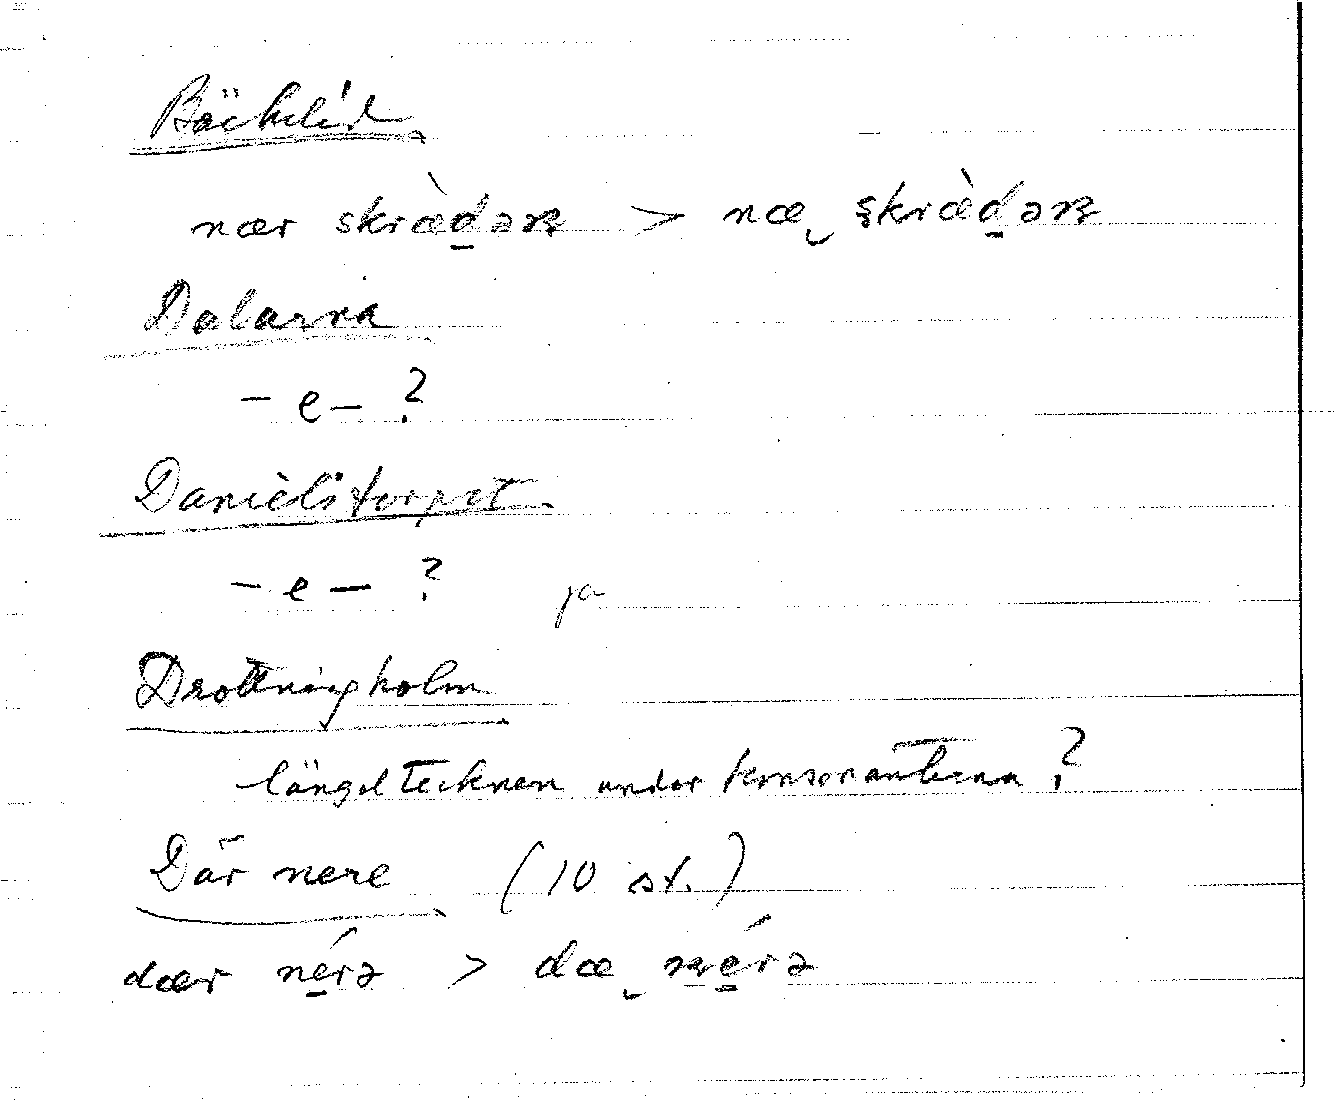 Bäckelid
nær skræ̀d̲əɳ > næ̮ ʂkræ̀d̲əɳ
Dalarna
– e – ?
Danièlstorpet
– e – ? ja
Drottningholm
längdtecknen under konsonanterna ?
Där nere (10 st.)
dær né̲rə > dæ̮ ɳé̲rə